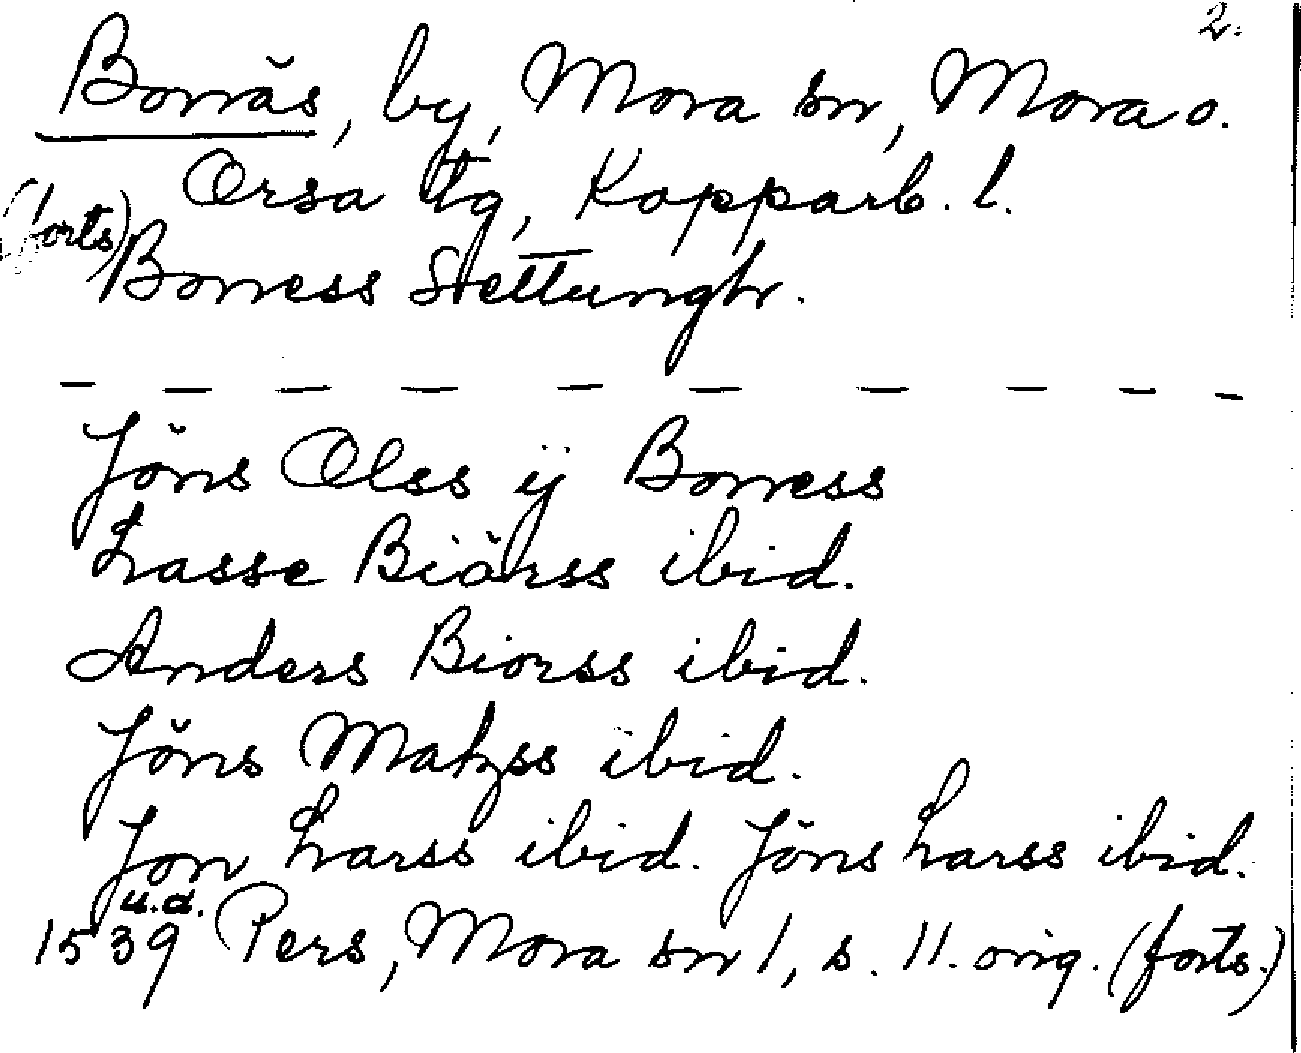 2.
Bonäs, by, Mora sn, Mora o.
Orsa tg, Kopparb. l.
(forts) Boness Settungh.
– – – – – – – – – –
Jöns Olss ij Boness
Lasse Biörss ibid.
Anders Biorss ibid.
Jöns Matzss ibid.
Jon Larss ibid. Jöns Larss ibid.
1539 u.d. Pers, Mora sn 1, s. 11. orig. (forts.)